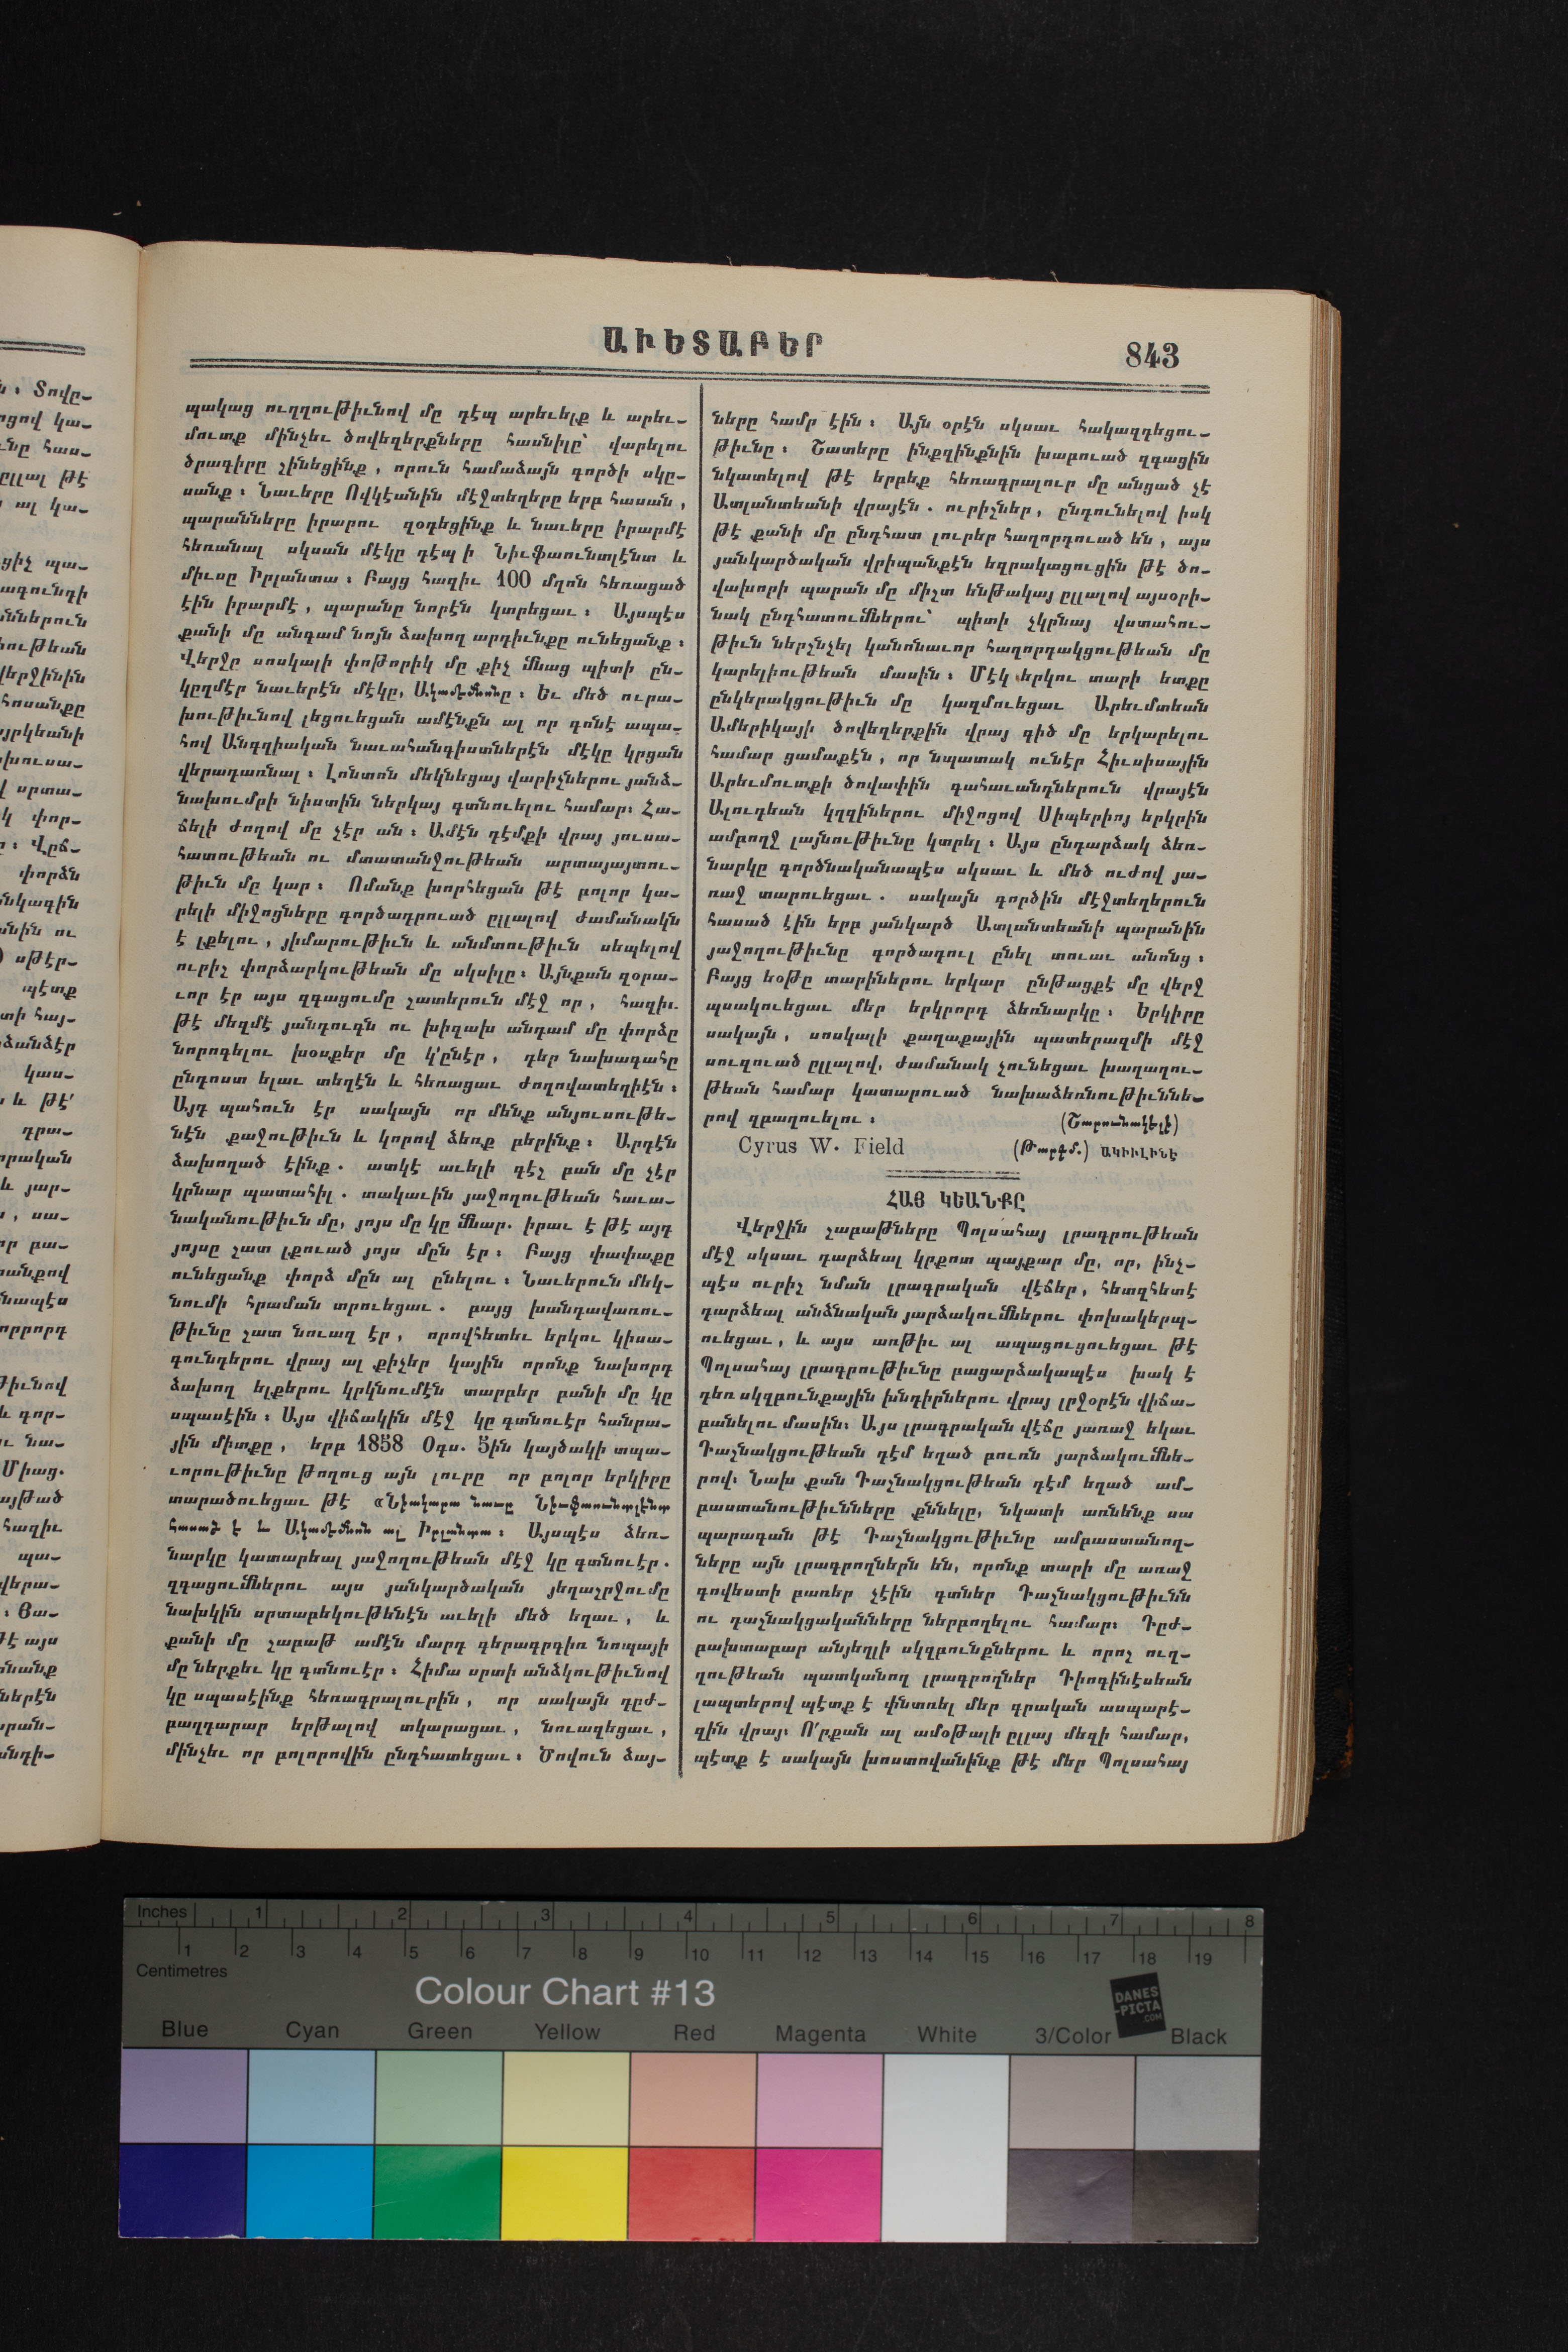 ԱՒԵՏԱԲԵՐ
843
պակաց ուղղութիւնով մը դէպ արեւելք և արեւ-
մուտք մինչեւ ծովեզերքները հասնիլը՝ վարելու
ծրագիրը շինեցինք, որուն համաձայն գործի սկը-
սանք։ Նաւերը Ովկէանին մէջտեղերը երբ հասան,
պարանները իրարու զօդեցինք և նաւերը իրարմէ
հեռանալ սկսան մէկը դէպ ի Նիւֆաունտլէնտ և
միւսը Իրլանտա։ Բայց հազիւ 100 մղոն հեռացած
էին իրարմէ, պարանը նորէն կտրեցաւ։ Այսպէս
քանի մը անգամ նոյն ձախող արդիւնքը ունեցանք։
Վերջը սոսկալի փոթորիկ մը քիչ մնաց պիտի ըն-
կըղմէր նաւերէն մէկը, Ակամեմնոնը։ Եւ մեծ ուրա-
խութիւնով լեցուեցան ամէնքն ալ որ գոնէ ապա-
հով Անգղիական նաւահանգիստներէն մէկը կրցան
վերադառնալ։ Լոնտոն մեկնեցայ վարիչներու յանձ-
նախումբի նիստին ներկայ գտնուելու համար։ Հա-
ճելի ժողով մը չէր ան։ Ամէն դէմքի վրայ յուսա-
հատութեան ու մտատանջութեան արտայայտու-
թիւն մը կար։ Ոմանք խորհեցան թէ բոլոր կա-
րելի միջոցները գործադրուած ըլլալով ժամանակն
է լքելու, յիմարութիւն և անմտութիւն սեպելով
ուրիչ փորձարկութեան մը սկսիլը։ Այնքան զօրա-
ւոր էր այս զգացումը շատերուն մէջ որ, հազիւ
թէ մեզմէ յանդուգն ու խիզախ անդամ մը փորձը
նորոգելու խօսքեր մը կ՚ընէր, դեր նախագահը
ընդոստ ելաւ տեղէն և հեռացաւ ժողովատեղիէն։
Այդ պահուն էր սակայն որ մենք անյուսութե-
նէն քաջութիւն և կորով ձեռք բերինք։ Արդէն
ձախողած էինք. ատկէ աւելի դէշ բան մը չէր
կրնար պատահիլ. տակաւին յաջողութեան հաւա-
նականութիւն մը, յոյս մը կը մնար. իրաւ է թէ այդ
յոյսը շատ լքուած յոյս մըն էր։ Բայց փափաքը
ունեցանք փորձ մըն ալ ընելու։ Նաւերուն մեկ-
նումի հրաման տրուեցաւ. բայց խանդավառու-
թիւնը շատ նուազ էր, որովհետեւ երկու կիսա-
գունդերու վրայ ալ քիչեր կային որոնք նախորդ
ձախող ելքերու կրկնումէն տարբեր բանի մը կը
սպասէին։ Այս վիճակին մէջ կը գտնուէր հանրա-
յին միտքը, երբ 1858 Օգս. 5ին կայծակի տպա-
ւորութիւնը թողուց այն լուրը որ բոլոր երկիրը
տարածուեցաւ թէ «Նիակարա նաւը Նիւֆաունտլէնտ
հասած է և Ակամեմնոն ալ Իրլանտա։ Այսպէս ձեռ-
նարկը կատարեալ յաջողութեան մէջ կը գտնուէր.
զգացումներու այս յանկարծական յեղաշրջումը
նախկին սրտաբեկութենէն աւելի մեծ եղաւ, և
քանի մը շաբաթ ամէն մարդ գերագրգիռ նոպայի
մը ներքեւ կը գտնուէր։ Հիմա սրտի անձկութիւնով
կը սպասէինք հեռագրալուրին, որ սակայն դըժ-
բաղդարար երթալով տկարացաւ, նուազեցաւ,
մինչեւ որ բոլորովին ընդհատեցաւ։ Ծովուն ձայ-
ները համր էին։ Այն օրէն սկսաւ հակազդեցու-
թիւնը։ Շատերը ինքզինքնին խաբուած զգացին
նկատելով թէ երբեք հեռագրալուր մը անցած չէ
Ատլանտեանի վրայէն. ուրիշներ, ընդունելով իսկ
թէ քանի մը ընդհատ լուրեր հաղորդուած են, այս
յանկարծական վրիպանքէն եզրակացուցին թէ ծո-
վախորի պարան մը միշտ ենթակայ ըլլալով այսօրի-
նակ ընդհատումներու՝ պիտի չկրնայ վստահու-
թիւն ներշնչել կանոնաւոր հաղորդակցութեան մը
կարելիութեան մասին։ Մէկ երկու տարի ետքը
ընկերակցութիւն մը կազմուեցաւ Արեւմտեան
Ամերիկայի ծովեզերքին վրայ գիծ մը երկարելու
համար ցամաքէն, որ նպատակ ունէր Հիւսիսային
Արեւմուտքի ծովափին դահաւանդներուն վրայէն
Ալուդեան կղզիներու միջոցով Սիպերիոյ երկրին
ամբողջ լայնութիւնը կտրել։ Այս ընդարձակ ձեռ-
նարկը գործնականապէս սկսաւ և մեծ ուժով յա-
ռաջ տարուեցաւ. սակայն գործին մէջտեղերուն
հասած էին երբ յանկարծ Ատլանտեանի պարանին
յաջողութիւնը գործադուլ ընել տուաւ անոնց։
Բայց եօթը տարիներու երկար ընթացքէ մը վերջ
պսակուեցաւ մեր երկրորդ ձեռնարկը։ Երկիրը
սակայն, սոսկալի քաղաքային պատերազմի մէջ
սուզուած ըլլալով, ժամանակ չունեցաւ խաղաղու-
թեան համար կատարուած նախաձեռնութիւննե-
րով զբաղուելու։ (Շարունակելի)
Cyrus W. Field (Թարգմ.) ԱԿԻՒԼԻՆԷ
ՀԱՅ ԿԵԱՆՔԸ
Վերջին շաբաթները Պոլսահայ լրագրութեան
մէջ սկսաւ դարձեալ կրքոտ պայքար մը, որ, ինչ-
պէս ուրիշ նման լրագրական վէճեր, հետզհետէ
դարձեալ անձնական յարձակումներու փոխակերպ-
ուեցաւ, և այս առթիւ ալ ապացուցուեցաւ թէ
Պոլսահայ լրագրութիւնը բացարձակապէս խակ է
դեռ սկզբունքային խնդիրներու վրայ լրջօրէն վիճա-
բանելու մասին։ Այս լրագրական վէճը յառաջ եկաւ
Դաշնակցութեան դէմ եղած բուռն յարձակումնե-
րով։ Նախ քան Դաշնակցութեան դէմ եղած ամ-
բաստանութիւնները քննելը, նկատի առնենք սա
պարագան թէ Դաշնակցութիւնը ամբաստանող-
ները այն լրագրողներն են, որոնք տարի մը առաջ
գովեստի բառեր չէին գտներ Դաշնակցութիւնն
ու դաշնակցականները ներբողելու համար։ Դըժ-
բախտաբար անյեղլի սկզբունքներու և որոշ ուղ-
ղութեան պատկանող լրագրողներ Դիոգինէսեան
լապտերով պէտք է փնտռել մեր գրական ասպարէ-
զին վրայ։ Ո՛րքան ալ ամօթալի ըլլայ մեզի համար,
պէտք է սակայն խոստովանինք թէ մեր Պոլսահայ
Inches 1 2 3 4 5 6 7 8
1 2 3 4 5 6 7 8 9 10 11 12 13 14 15 16 17 18 19
Centimetres
Colour Chart #13
DANES
-PICTA
.COM
Blue Cyan Green Yellow Red Magenta White 3/Color Black